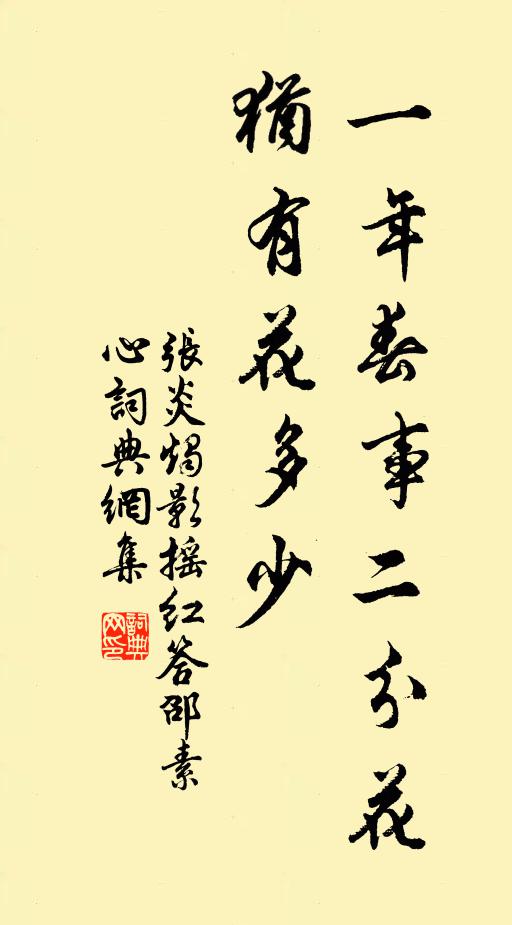 一年春事二分花
猶有花多少
張炎燭影摇紅答邵素
心詞典網集
詞典网印